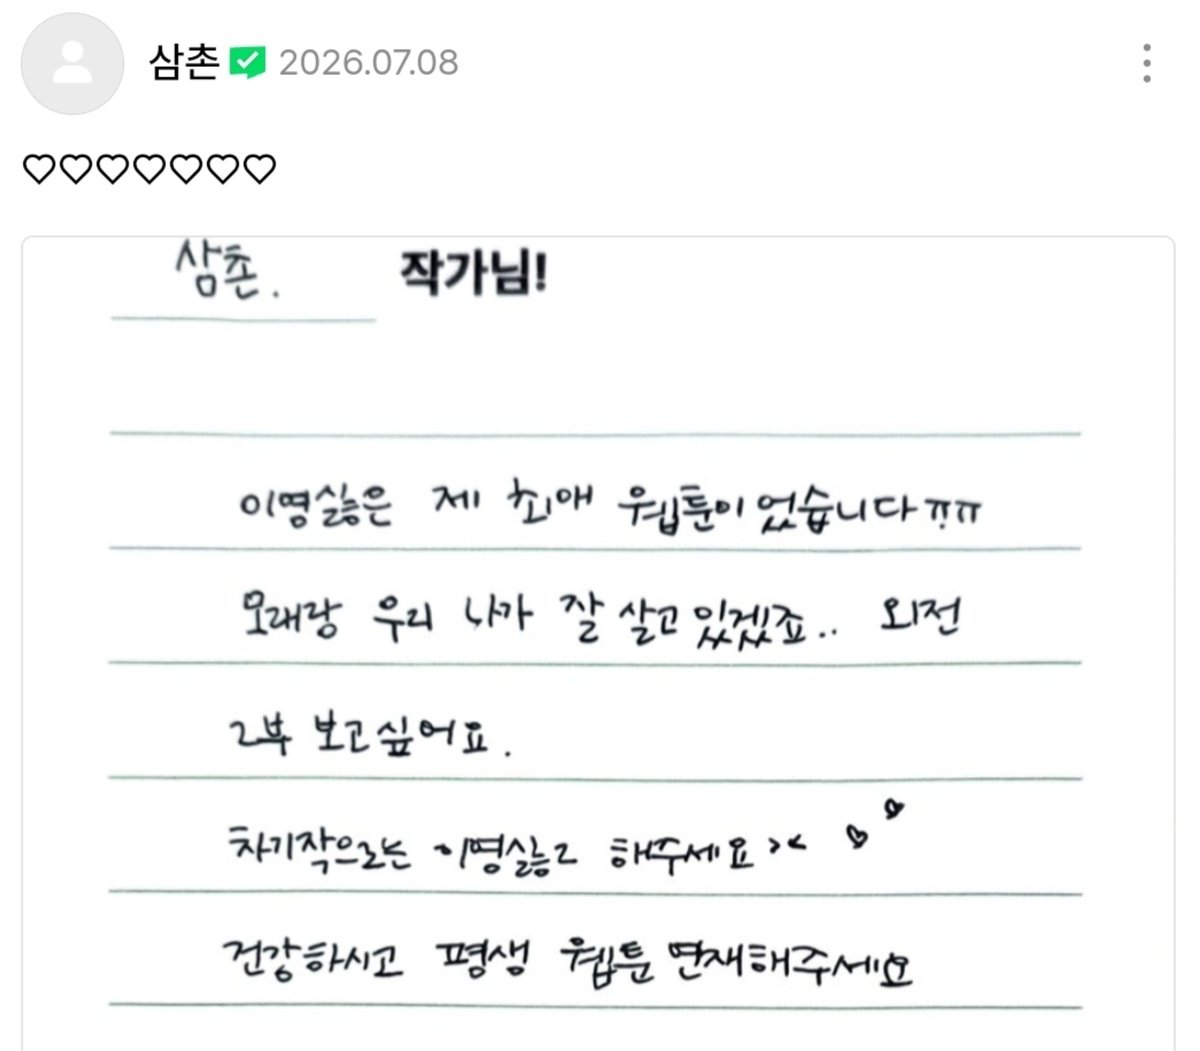 삼촌 2026.07.08
♡♡♡♡♡♡♡
삼촌. 작가님!
이영싫은 제 최애 웹툰이었습니다ㅠㅠ
모래랑 우리 나가 잘 살고있겠죠.. 외전
2부 보고싶어요.
차기작으로는 이영싫2 해주세요>< ♡ ♡
건강하시고 평생 웹툰 연재해주세요